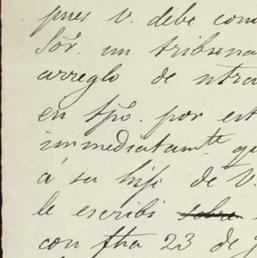 pues v. debe con
Sor. un tribuna
arreglo de ntra
en tpo. por est
immediatamte. qu
á su hijo de V.
le escribi sobre
con fha 23 de J